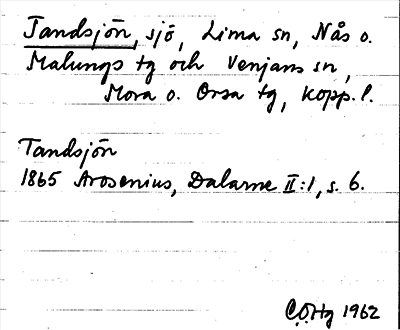 Tandsjön, sjö, Lima sn, Nås o.
Malungs tg och Venjans sn,
Mora o. Orsa tg, Kopp. l.
Tandsjön
1865 Arosenius, Dalarne II:1, s. 6.
C.Ö.Hg 1962